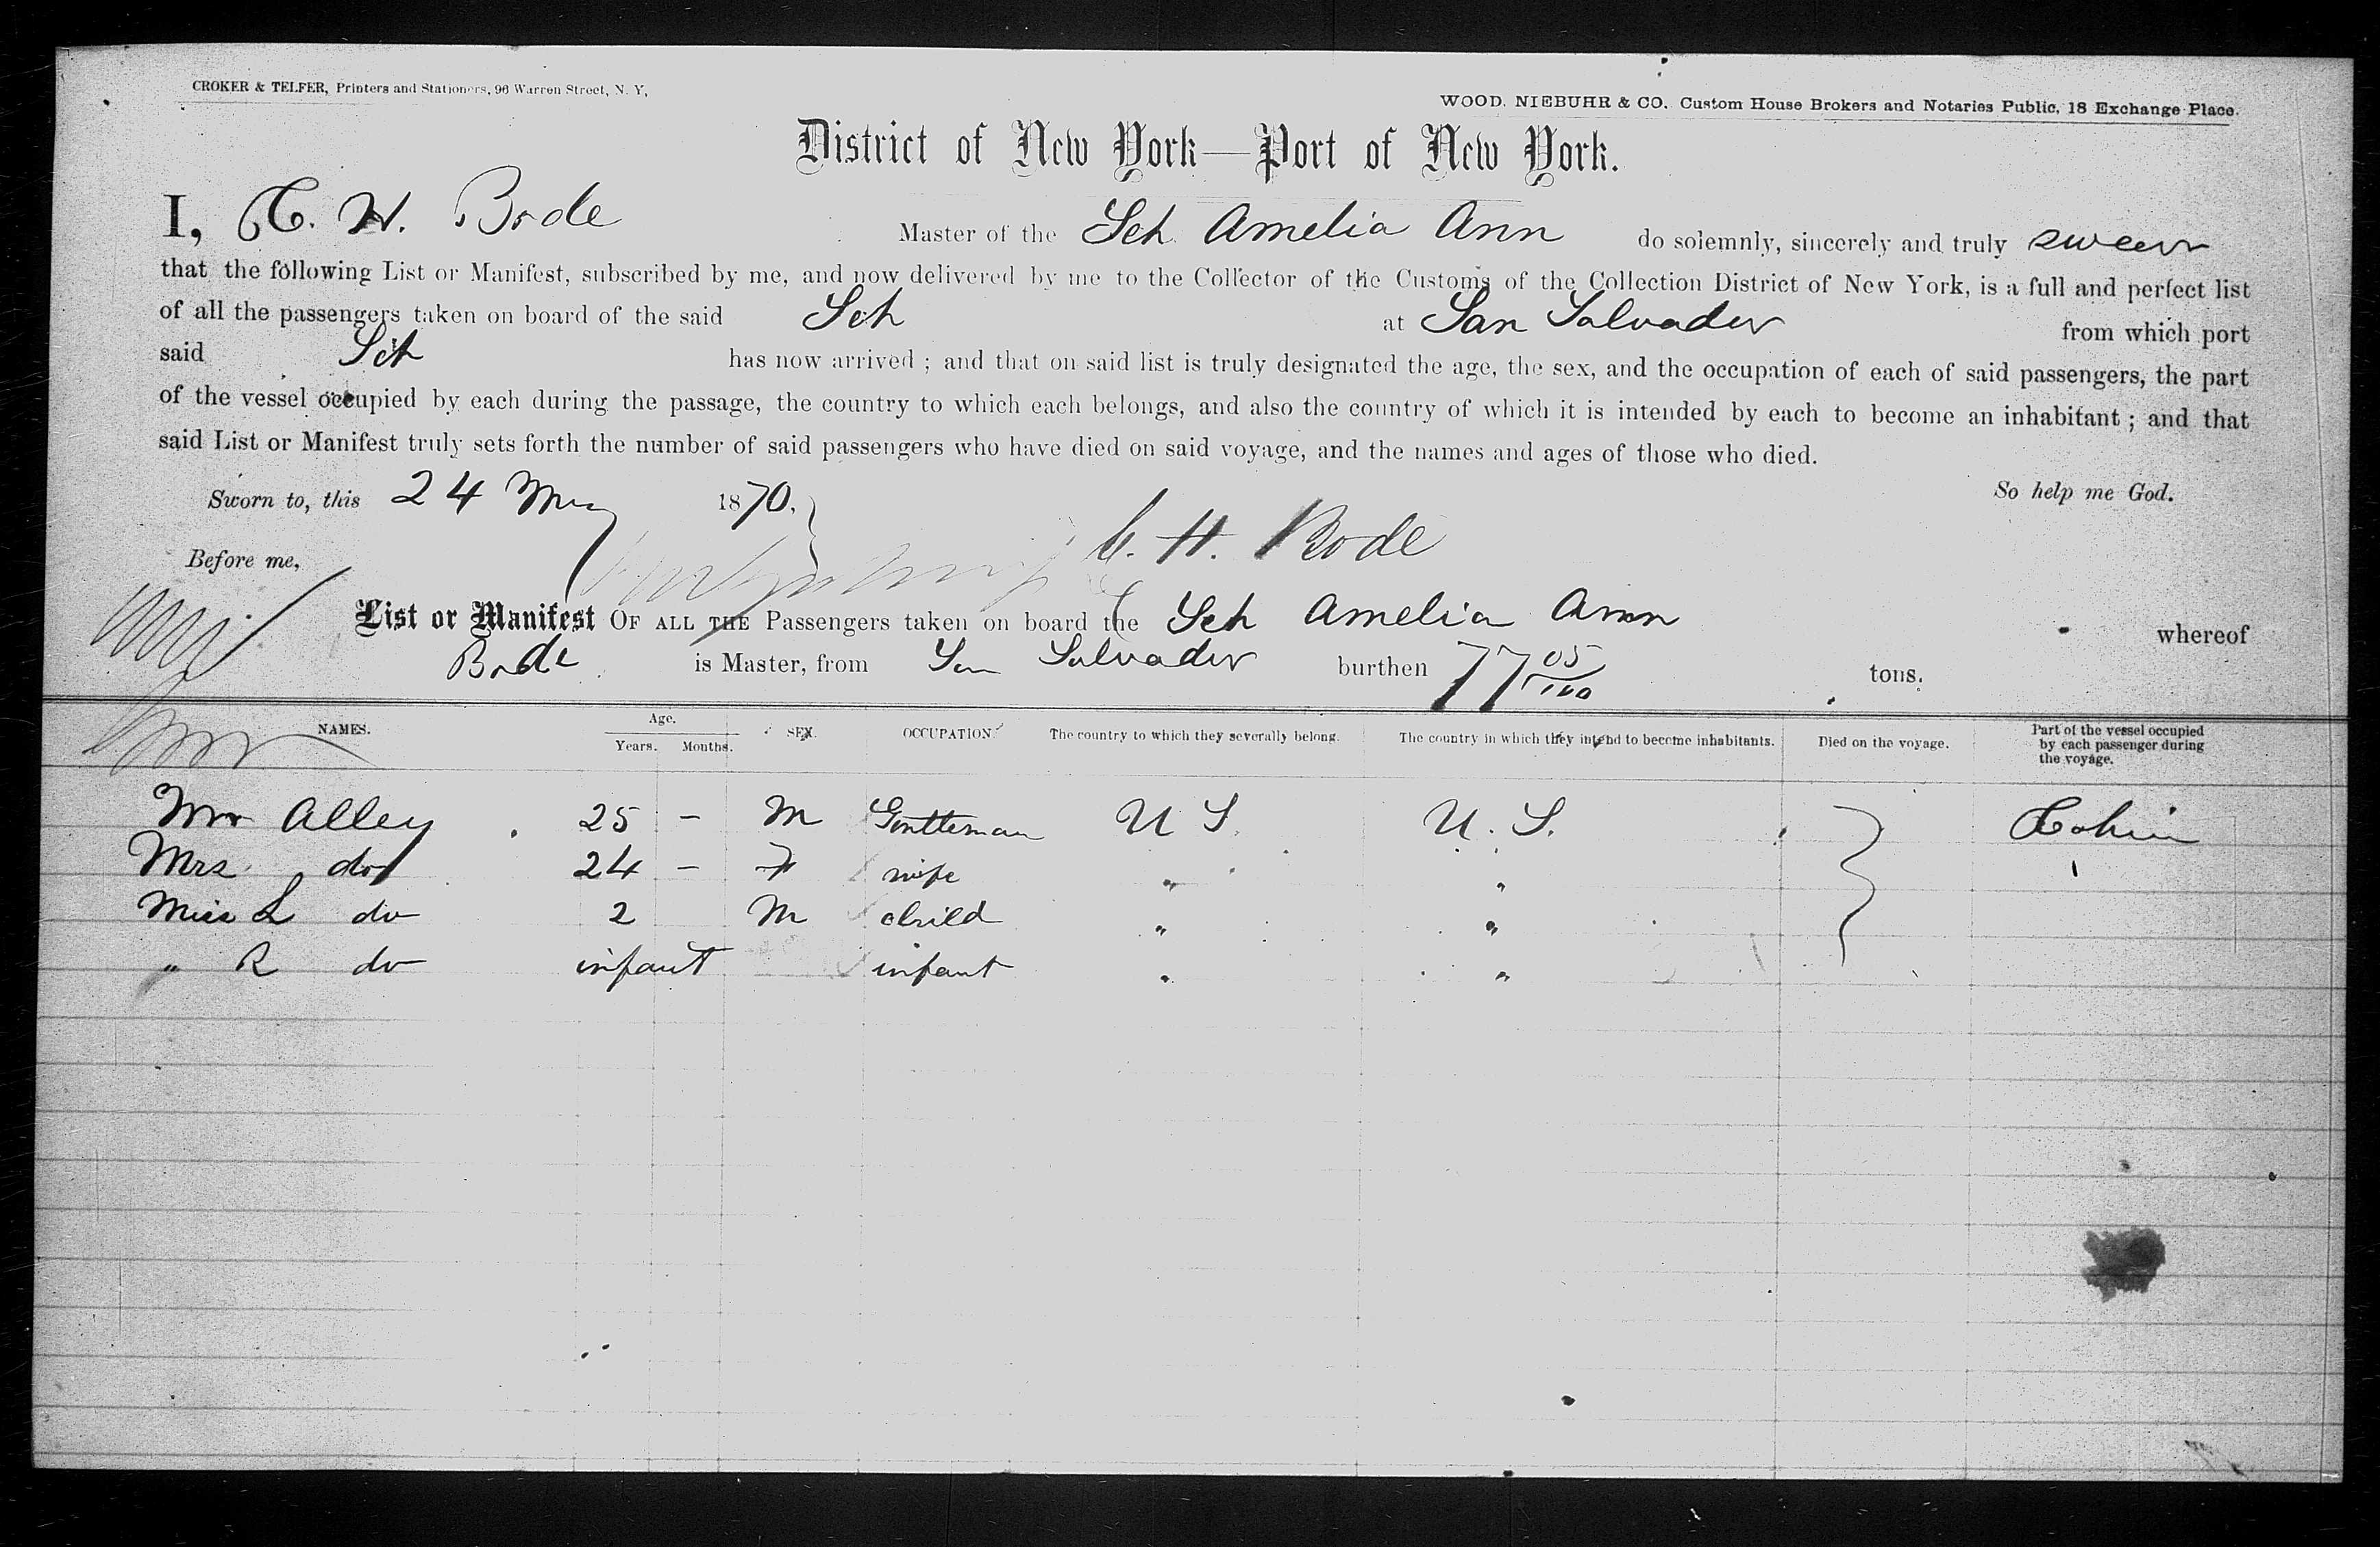 CROKER & TELFER, Printers and Stationers, 96 Warren Street, N. Y,
WOOD. NIEBUHR & CO. Custom House Brokers and Notaries Public, 18 Exchange Place.
District of New York—Port of New York.
I, C. H. Bode Master of the Sch Amelia Ann do solemnly, sincerely and truly swear
that the following List or Manifest, subscribed by me, and now delivered by me to the Collector of the Customs of the Collection District of New York, is a full and perfect list
of all the passengers taken on board of the said Sch at San Salvador from which port
said Sch has now arrived ; and that on said list is truly designated the age, the sex, and the occupation of each of said passengers, the part
of the vessel occupied by each during the passage, the country to which each belongs, and also the country of which it is intended by each to become an inhabitant ; and that
said List or Manifest truly sets forth the number of said passengers who have died on said voyage, and the names and ages of those who died.
Sworn to, this 24 May 1870. So help me God.
C. H. Bode
Before me,
List or Manifest OF ALL THE Passengers taken on board the Sch Amelia Ann whereof
Bode is Master, from San Salvador burthen 77 05/100 tons.
NAMES. Age. Years. Months. SEX. OCCUPATION. The country to which they severally belong. The country in which they intend to become inhabitants. Died on the voyage. Part of the vessel occupied by each passenger during the voyage.
Mr Alley 25 — M Gentleman U S. U. S. Cabin
Mrs. do 24 — F wife " "
Miss L do 2 M child " "
" R do infant infant " "